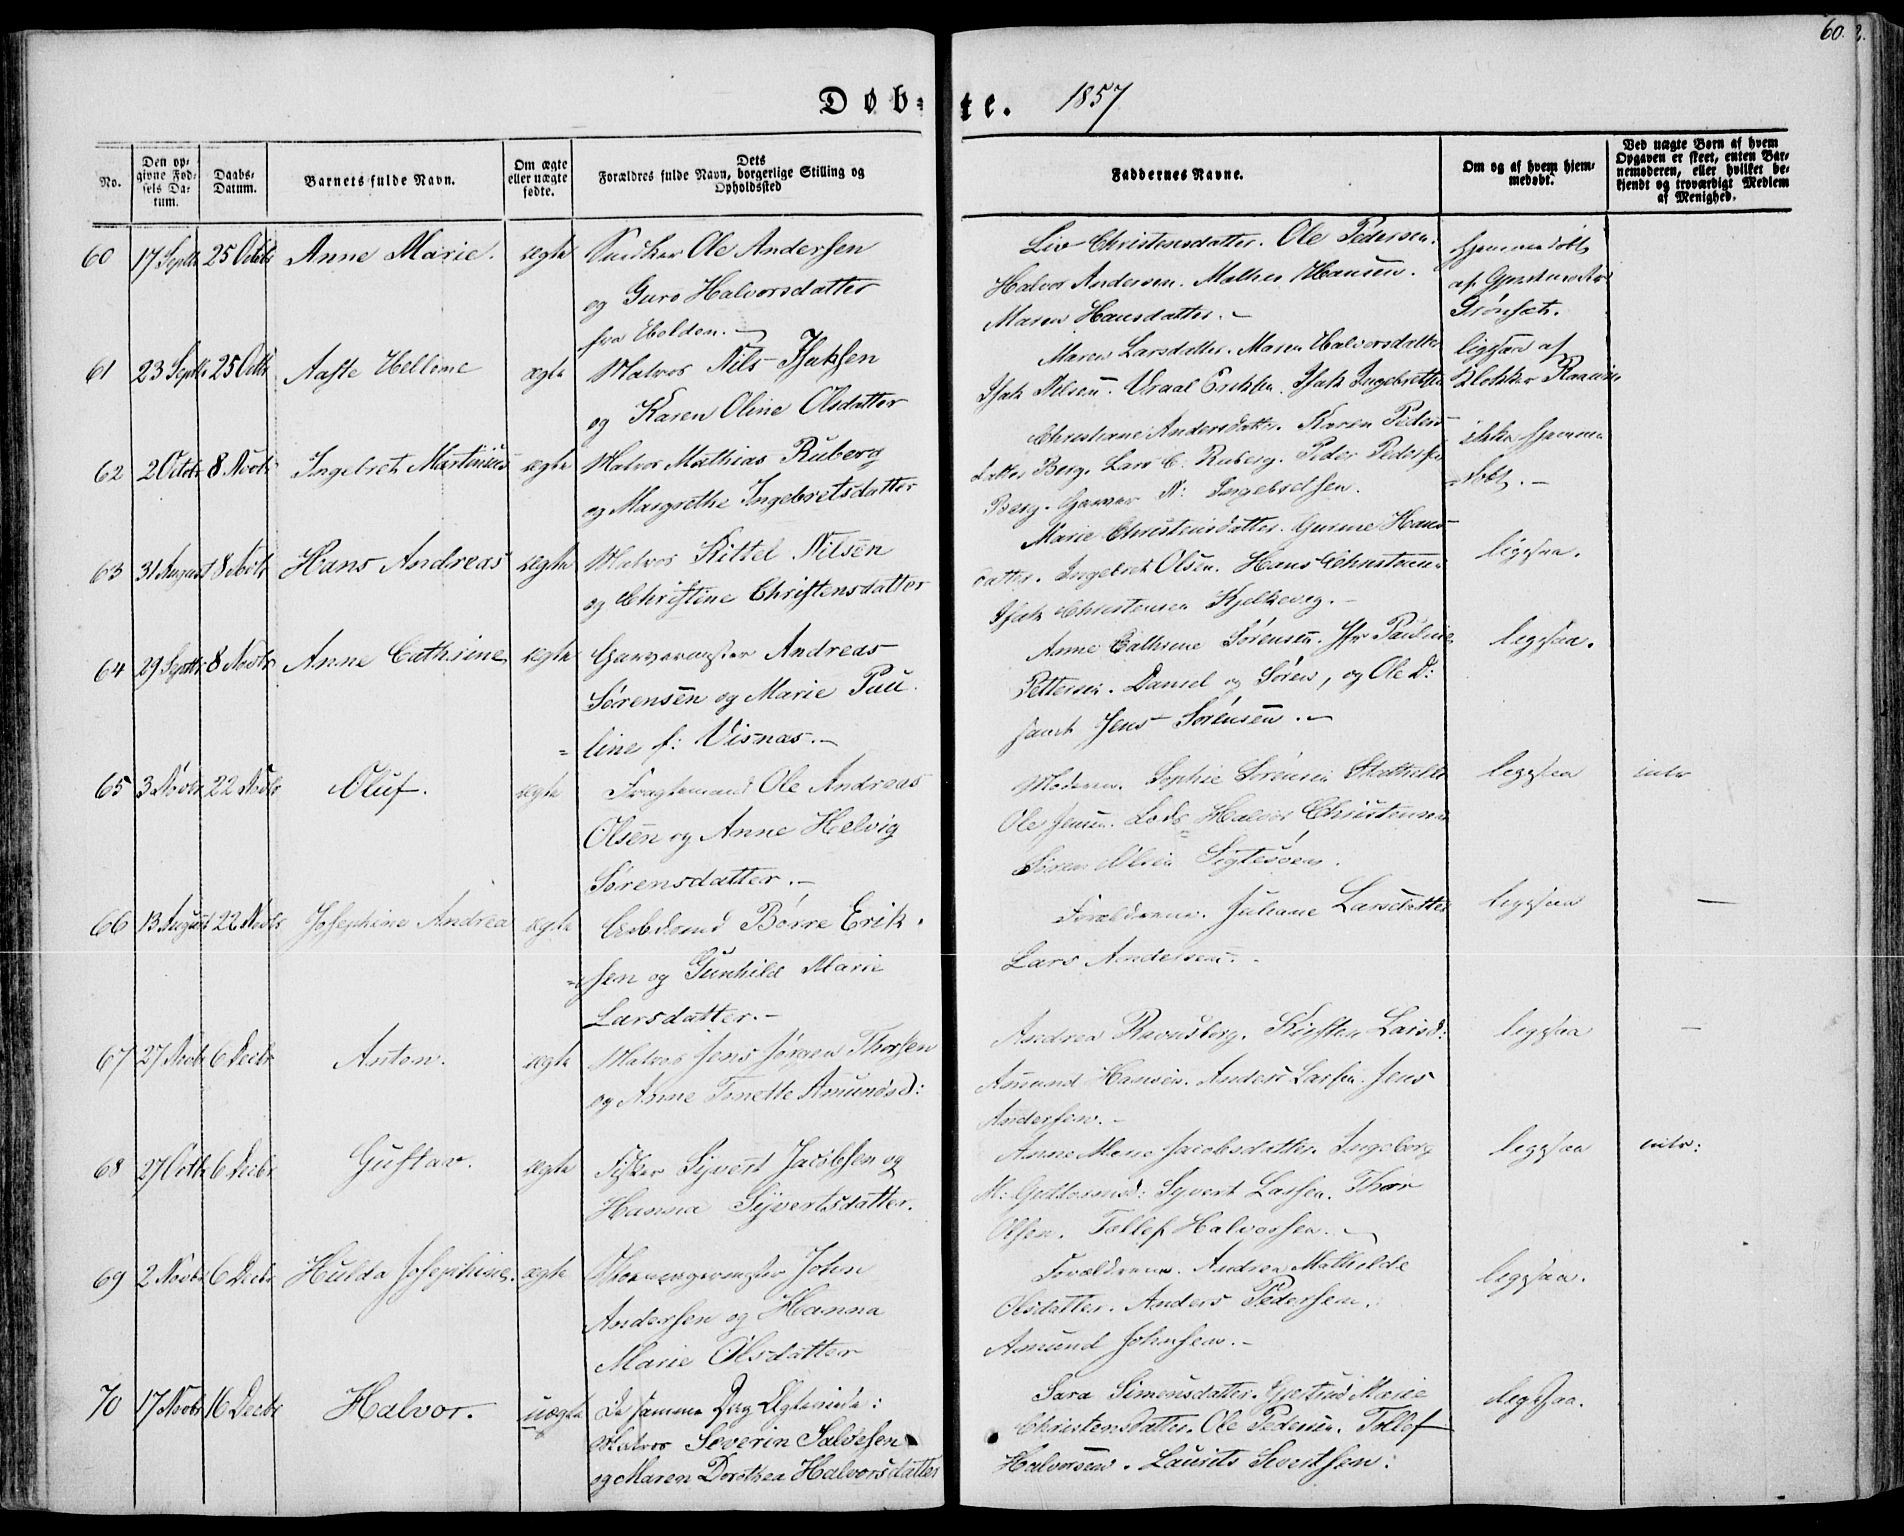 60. 2.
Døb=te. 1857
No.
Den op=
givne Fød=
sels Da=
tum.
Daabs=
Datum.
Barnets fulde Navn.
Om ægte
eller uægte
fødte.
Dets
Forældres fulde Navn, borgerlige Stilling og
Opholdssted
Faddernes Navne.
Om og af hvem hjem=
medøbt.
Ved uægte Børn af hvem
Opgaven er skeet, enten Bar=
nemoderen, eller hvilket be=
kjendt og troværdigt Medlem
af Menighed.
60 17 Septbr 25 Octbr Anne Marie. ægte Snedker Ole Andersen
og Guro Halvorsdatter
fra Helden.
Liv Christensdatter. Ole Pedersen.
Halvor Andersen. Mathis Hansen.
Maren Hansdatter.
hjemmedøbt
af
Grønsæt.
61 23 Septbr 25 Octbr Aaste Helline ægte Matros Nils Isaksen
og Karen Oline Olsdatter
Maren Larsdatter. Maren Halvorsdatter
Isak Nilsen. Vraal Eriksen. Isak Ingebretsen
ligesaa af
Klokker
62 2 Octbr 8 Novbr Ingebret Martinius ægte Matros Mathias Ruberg
og Margrethe Ingebretsdatter
Christiane Andersdatter. Karen Peders=
datter Berg. Lars C. Ruberg. Peder Pedersen
Berg. Garver N: Ingebretsen.
ikke hjemme
døbt.
63 31 August 8 Novbr Hans Andreas ægte Matros Kittel Nilsen
og Christine Christensdatter
Marie Christensdatter. Gunne Hans=
datter. Ingebret Olsen. Hans Christensen
Isak Christensen Kjelkevig.
ligesaa.
64 29 Septbr 8 Novbr Anne Cathrine ægte Garvermester Andreas
Sørensen og Marie Pau=
line f: Visnæs.
Anne Cathrine Sørensen. Jfr Pauline
Pettersen. Daniel og Søren, og Ole D:
samt Jens Sørensen.
ligesaa.
65 3 Novbr 22 Novbr Oluf. ægte Fragtemand Ole Andreas
Olsen og Anne Helvig
Sørensdatter.
Moderen. Sophie Sørensen
Ole Jensen. Lods Halvor Christensen
Søren Olsen
ligesaa intr
66 13 August 22 Novbr Josephine Andrea ægte Arbdsmd Børre Erik=
sen og Gunhild Marie
Larsdatter.
Forældrene. Juliane Larsdatter
Lars Andersen.
ligesaa —
67 27 Novbr 6 Decbr Anton. ægte Matros Jens Jørgen Thorsen
og Anne Tonette Amundsd:
Andrea Ravnsborg. Kirsten Larsd:
Amund Hansen. Anders Larsen. Jens
Andersen.
ligesaa —
68 27 Octbr 6 Decbr Gustav. ægte Fisker Syvert Jacobsen og
Hanna Syvertsdatter.
Anne Marie Jacobsdatter. Ingeborg
M: Syvert Larsen. Thor
Olsen. Tollef Halvorsen.
ligesaa intr:
69 2 Novbr 6 Decbr Hulda Josephine. ægte Skomagermester John
Andersen og Hanna
Marie Olsdatter
Forældrene. Andrea Mathilde
Olsdatter. Anders Pedersen.
Amund Johnsen.
ligesaa.
70 17 Novbr 16 Decbr Halvor. uægte De samme Dag Ægteviede:
Matros Severin Salvesen
og Maren Dorothea Halvorsdatter
Sara Simonsdatter. Gjertrud Marie
Christensdatter. Ole Pedersen. Tollef
Halvorsen. Laurits Sivertsen:
ligesaa.